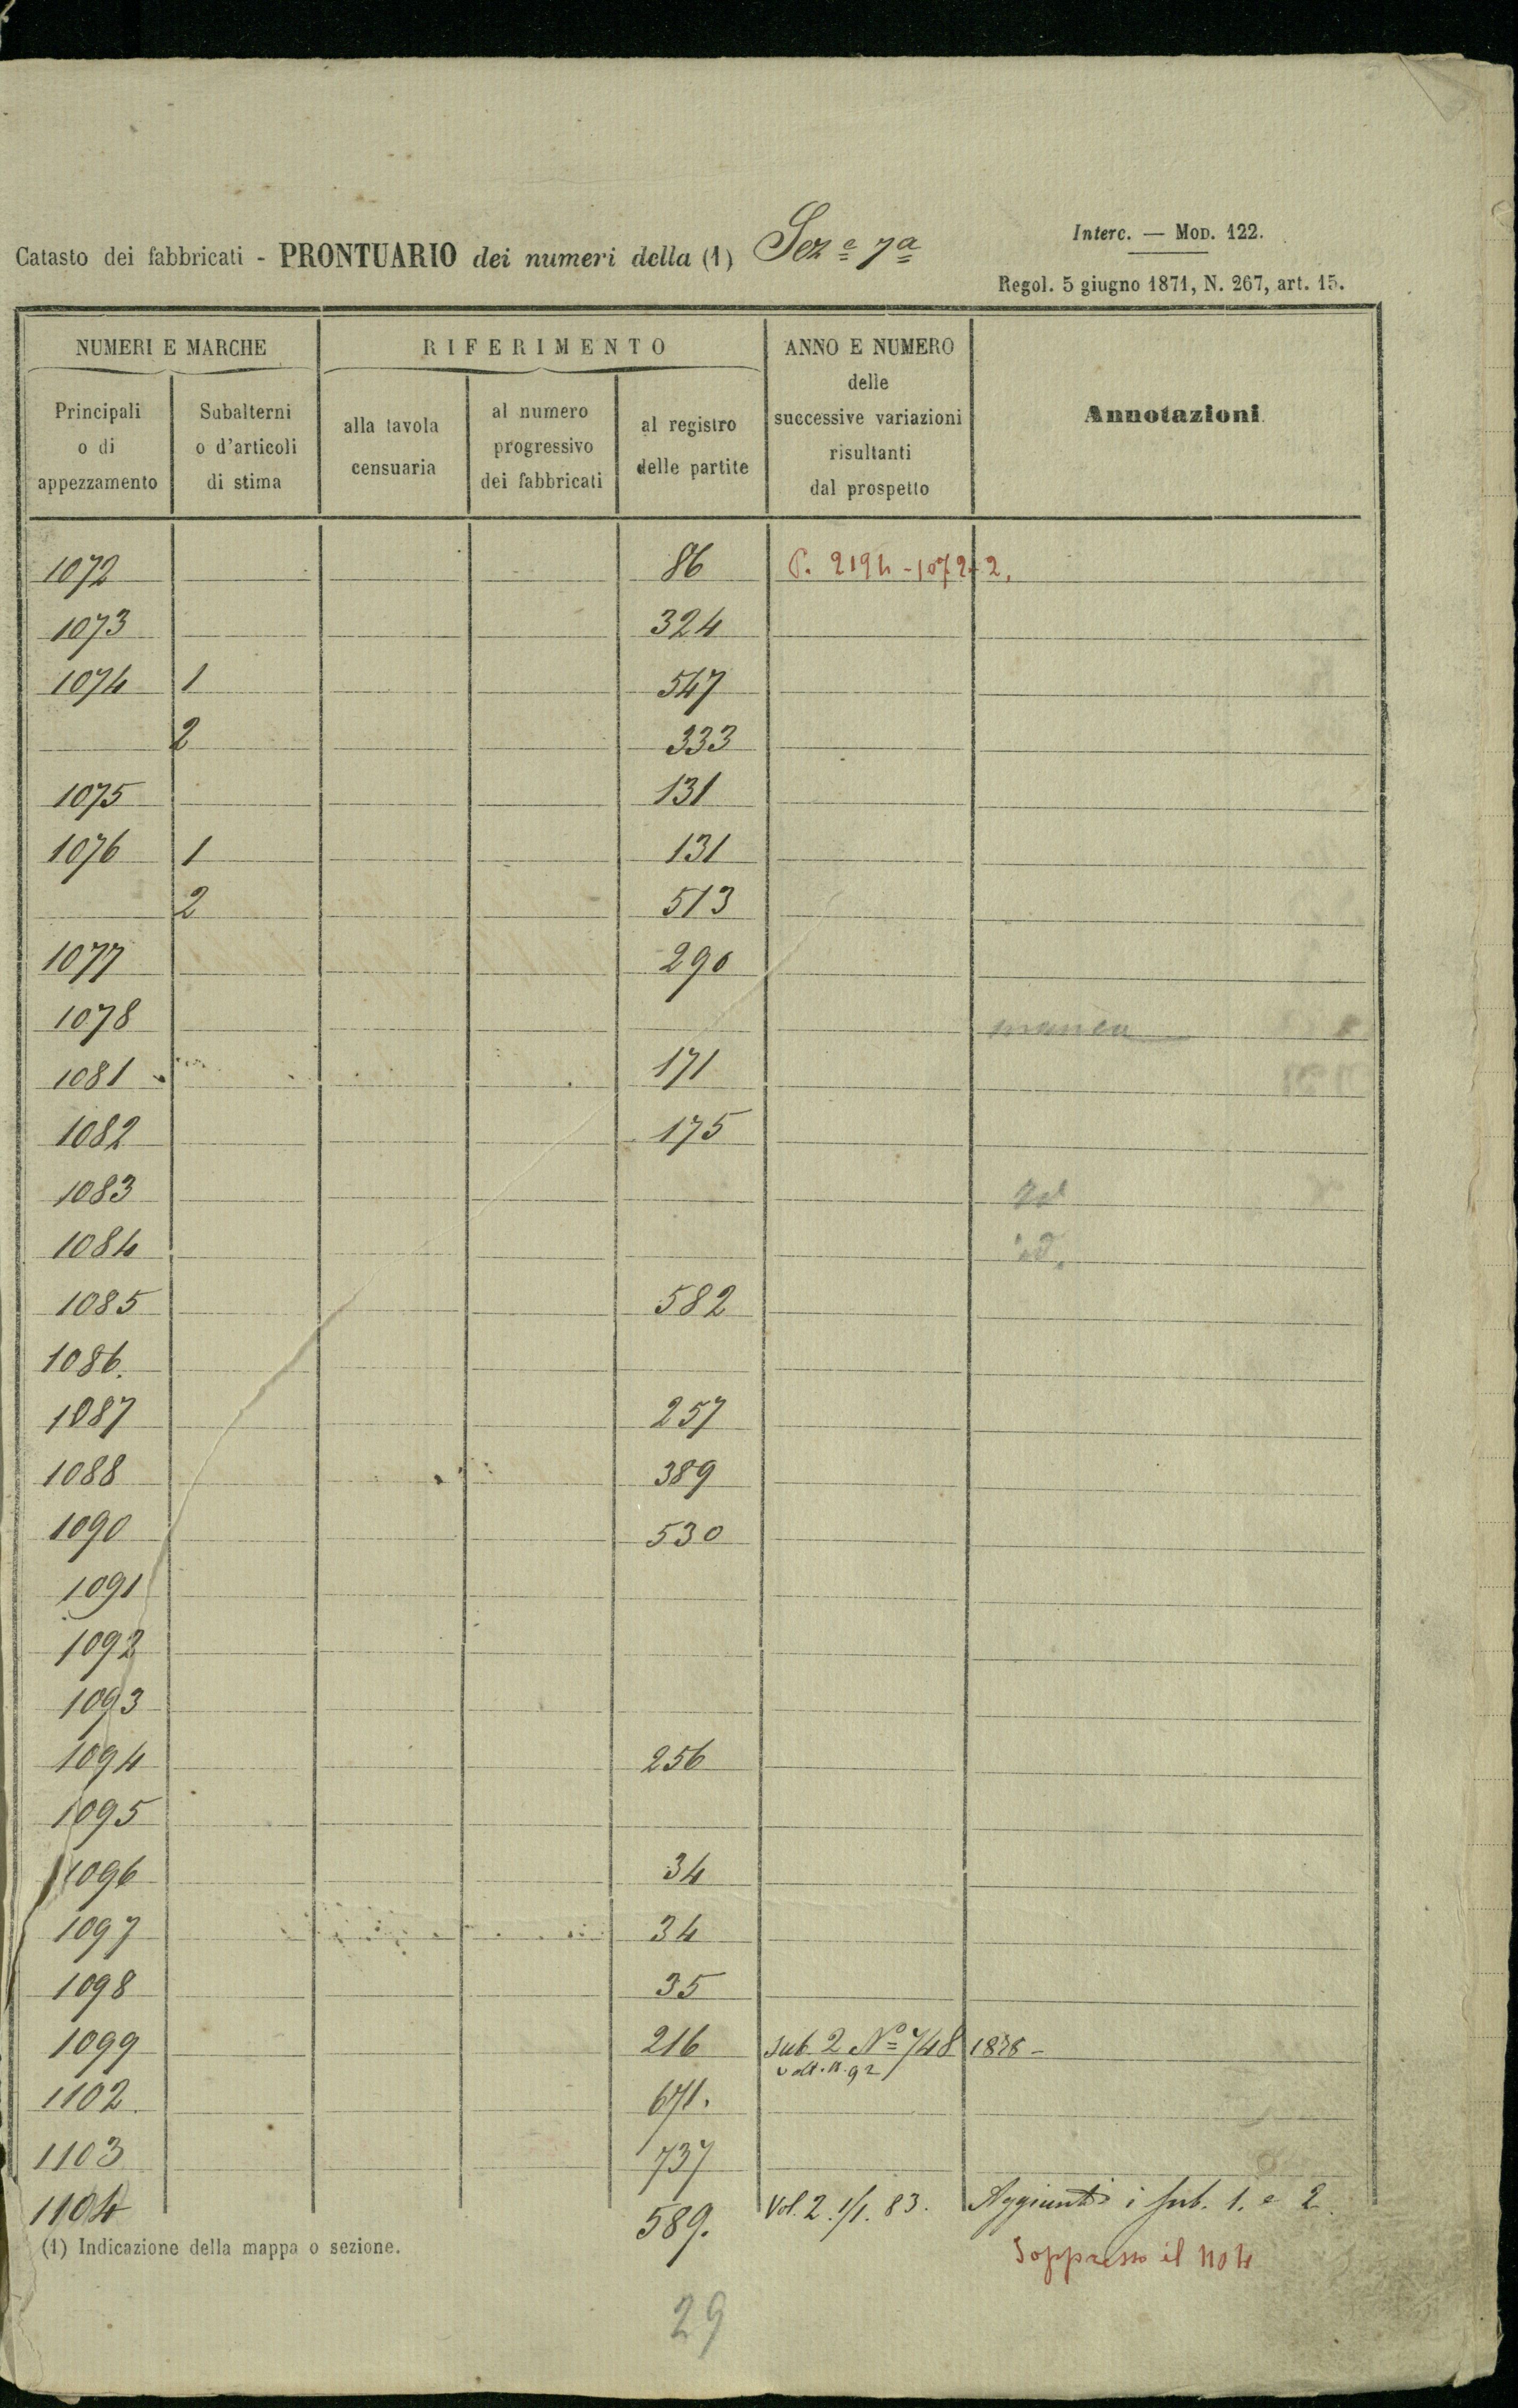 Catasto dei fabbricati - PRONTUARIO dei numeri della (1) Sez.e 7a
Interc. — Mod. 122.
Regol. 5 giugno 1871, N. 267, art. 15.
NUMERI E MARCHE
RIFERIMENTO
ANNO E NUMERO
delle
successive variazioni
risultanti
dal prospetto
Annotazioni
Principali
o di
appezzamento
Subalterni
o d'articoli
di stima
alla tavola
censuaria
al numero
progressivo
dei fabbricati
al registro
delle partite
1072 86 P. 2194 - 1072 + 2.
1073 324
1074 1 547
2 333
1075 131
1076 1 131
2 513
1077 290
1078 manca
1081 171
1082 175
1083 id
1084 id.
1085 582
1086.
1087 257
1088 389
1090 530
1091
1092
1093
1094 256
1095
1096 34
1097 34
1098 35
1099 216 sub. 2 No 748 1878 -
1102. 671.
1103 737
1104 589. Vol. 2. 1/1. 83. Aggiunti i sub. 1. e 2.
(1) Indicazione della mappa o sezione.
Soppresso il 1104
29